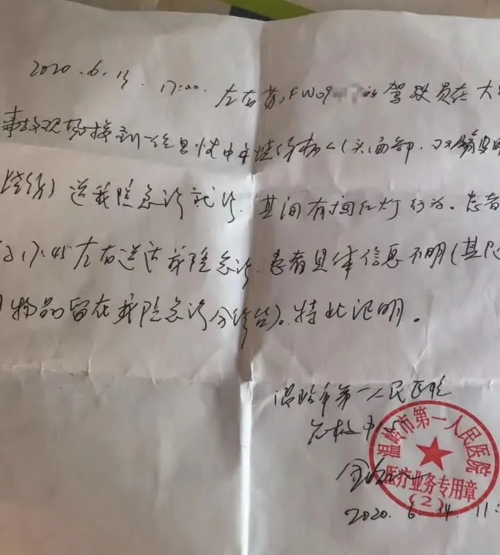 2020.6.13. 17:00左右苏FW09 的驾驶员在大
事故现场接到一位重度烧伤病人(头面部、双
烧伤)送我院急诊就诊.其间有闯红灯行为.患者
17:45左右送达我院急诊.患者具体信息不明(其
物品留在我院急诊分诊台)。特此证明。
温岭市第一人民医院
急救中心
温岭市第一人民医院
医疗业务专用章
(2)
2020.6.14. 11: